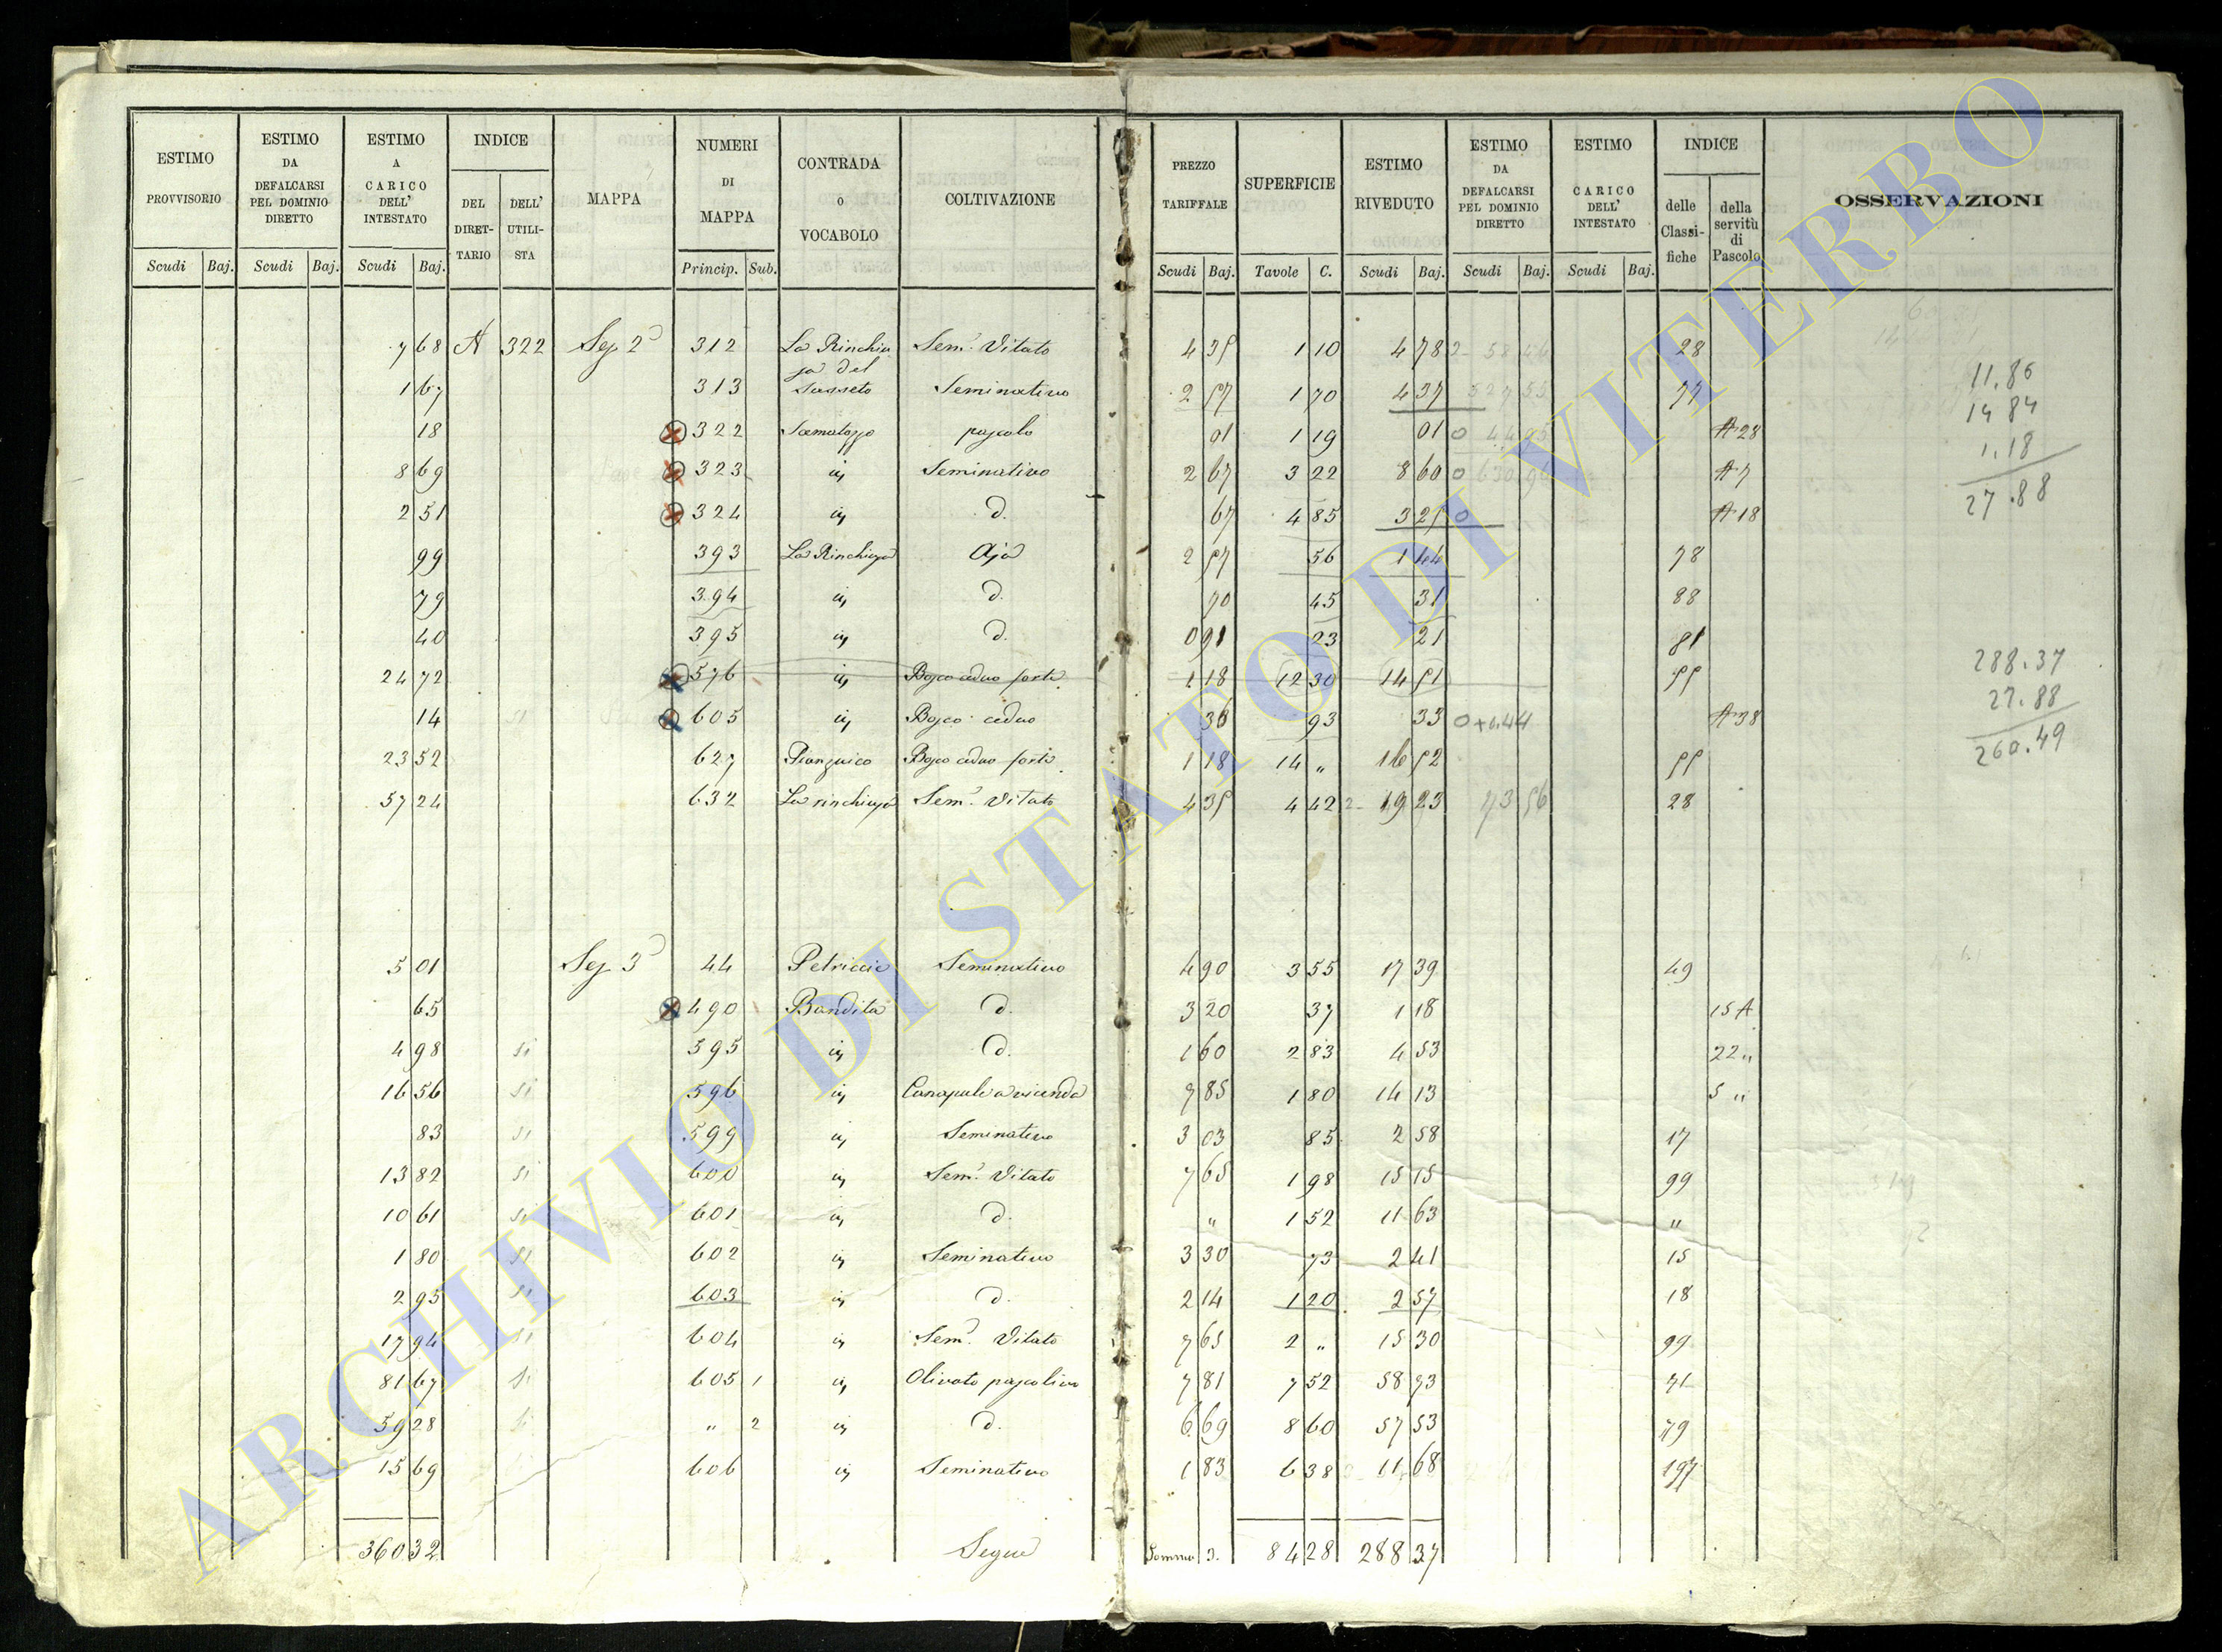 ESTIMO PROVVISORIO | ESTIMO DA DEFALCARSI PEL DOMINIO DIRETTO | ESTIMO A CARICO DELL' INTESTATO | INDICE DEL DIRET-TARIO | DELL' UTILI-STA | MAPPA | NUMERI DI MAPPA | CONTRADA o VOCABOLO | COLTIVAZIONE | PREZZO TARIFFALE | SUPERFICIE | ESTIMO RIVEDUTO | ESTIMO DA DEFALCARSI PEL DOMINIO DIRETTO | ESTIMO CARICO DELL' INTESTATO | INDICE delle Classi-fiche | della servitù di Pascolo | OSSERVAZIONI
Scudi | Baj. | Scudi | Baj. | Scudi | Baj. | Princip. | Sub. | Scudi | Baj. | Tavole | C. | Scudi | Baj. | Scudi | Baj. | Scudi | Baj.
7 68 | A | 322 | Sez 2ª | 312 | La Rinchiu | Semº Vitato | 4 35 | 1 10 | 4 78 | 28
sa del
1 67 | 313 | Sasseto | Seminativo | 2 57 | 1 70 | 4 37 | 77 | 11.86
18 | 322 | pascolo | 01 | 1 19 | 01 | A 28 | 14 84
8 69 | 323 | iy | Seminativo | 2 67 | 3 22 | 8 60 | A 7 | 1.18
2 51 | 324 | iy | d. | 67 | 4 85 | 3 25 | A 18 | 27.88
99 | 393 | La Rinchiusa | Aja | 2 57 | 56 | 1 44 | 78
79 | 394 | iy | d. | 70 | 45 | 31 | 88
40 | 395 | iy | d. | 0 91 | 23 | 21 | 81
24 72 | 576 | iy | Bosco ceduo forte | 1 18 | 12 30 | 14 51 | 55 | 288.37
14 | 605 | iy | Bosco ceduo | 36 | 93 | 33 | A 38 | 27.88
23 52 | 627 | Bosco ceduo forte | 1 18 | 14 " | 16 52 | 55 | 260.49
57 24 | 632 | La rinchiusa | Semº Vitato | 4 35 | 4 42 | 19 23 | 73 56 | 28
5 01 | Sez 3ª | 44 | Petriccie | Seminativo | 4 90 | 3 55 | 17 39 | 49
65 | 490 | Bandita | d. | 3 20 | 37 | 1 18 | 15 A
4 98 | si | 595 | iy | d. | 1 60 | 2 83 | 4 53 | 22 "
16 56 | si | 596 | iy | Canapule a vicenda | 7 85 | 1 80 | 14 13 | 5 "
83 | si | 599 | iy | Seminativo | 3 03 | 85 | 2 58 | 17
13 82 | si | 600 | iy | Semº Vitato | 7 65 | 1 98 | 15 15 | 99
10 61 | si | 601 | iy | d. | " | 1 52 | 11 63 | "
1 80 | si | 602 | iy | Seminativo | 3 30 | 73 | 2 41 | 15
2 95 | si | 603 | iy | d. | 2 14 | 1 20 | 2 57 | 18
17 94 | si | 604 | iy | Semº Vitato | 7 65 | 2 " | 15 30 | 99
81 67 | si | 605 | 1 | iy | Olivato pascolivo | 7 81 | 7 52 | 58 73 | 41
59 28 | si | " | 2 | iy | d. | 6 69 | 8 60 | 57 53 | 79
15 69 | 606 | iy | Seminativo | 1 83 | 6 38 | 11 68 | 197
360 32 | Segue | Somma | 84 28 | 288 37
ARCHIVIO DI STATO DI VITERBO